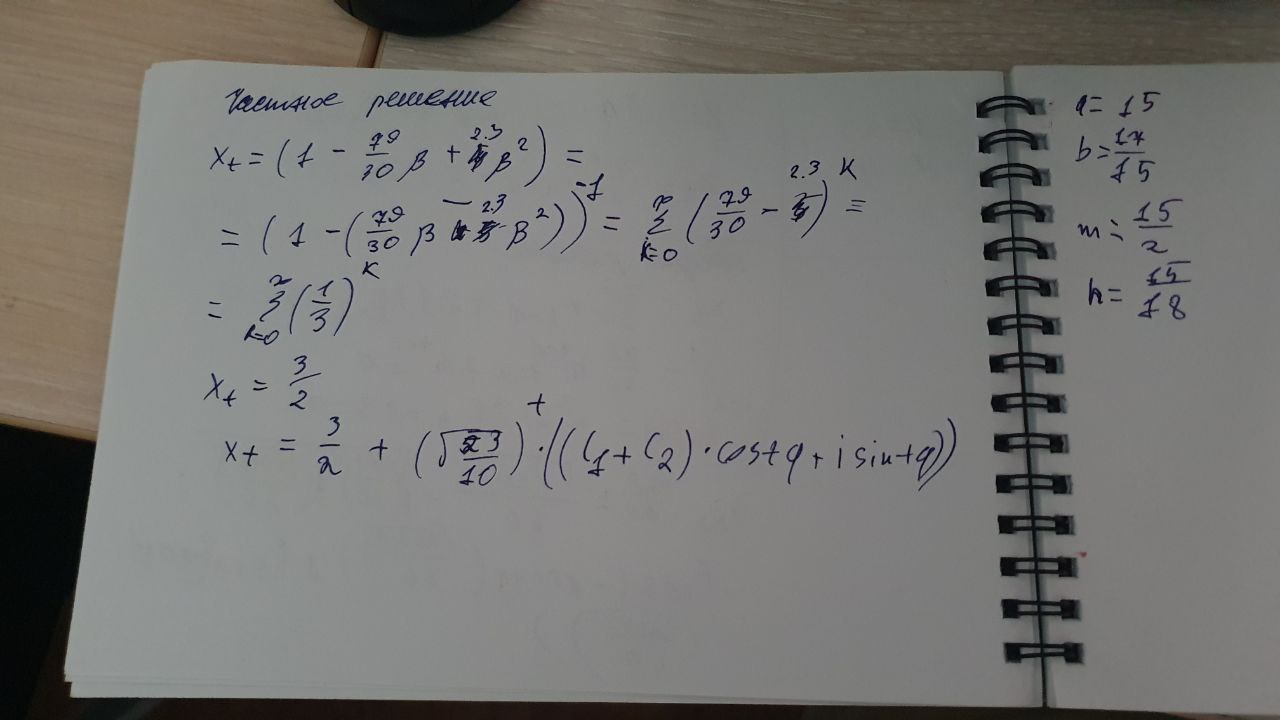 Частное решение
x_t = (1 - 79/30 β + 2.3 β²) =
= (1 - (79/30 β - 2.3 β²))⁻¹ = Σ_{k=0}^{∞} (79/30 - 2.3)^k =
= Σ_{k=0}^{∞} (1/3)^k
x_t = 3/2
x_t = 3/2 + (√(23/10))^t · ((C₁ + C₂) · cos tφ + i sin tφ))
a = 15
b = 17/15
m = 15/2
h = 15/18